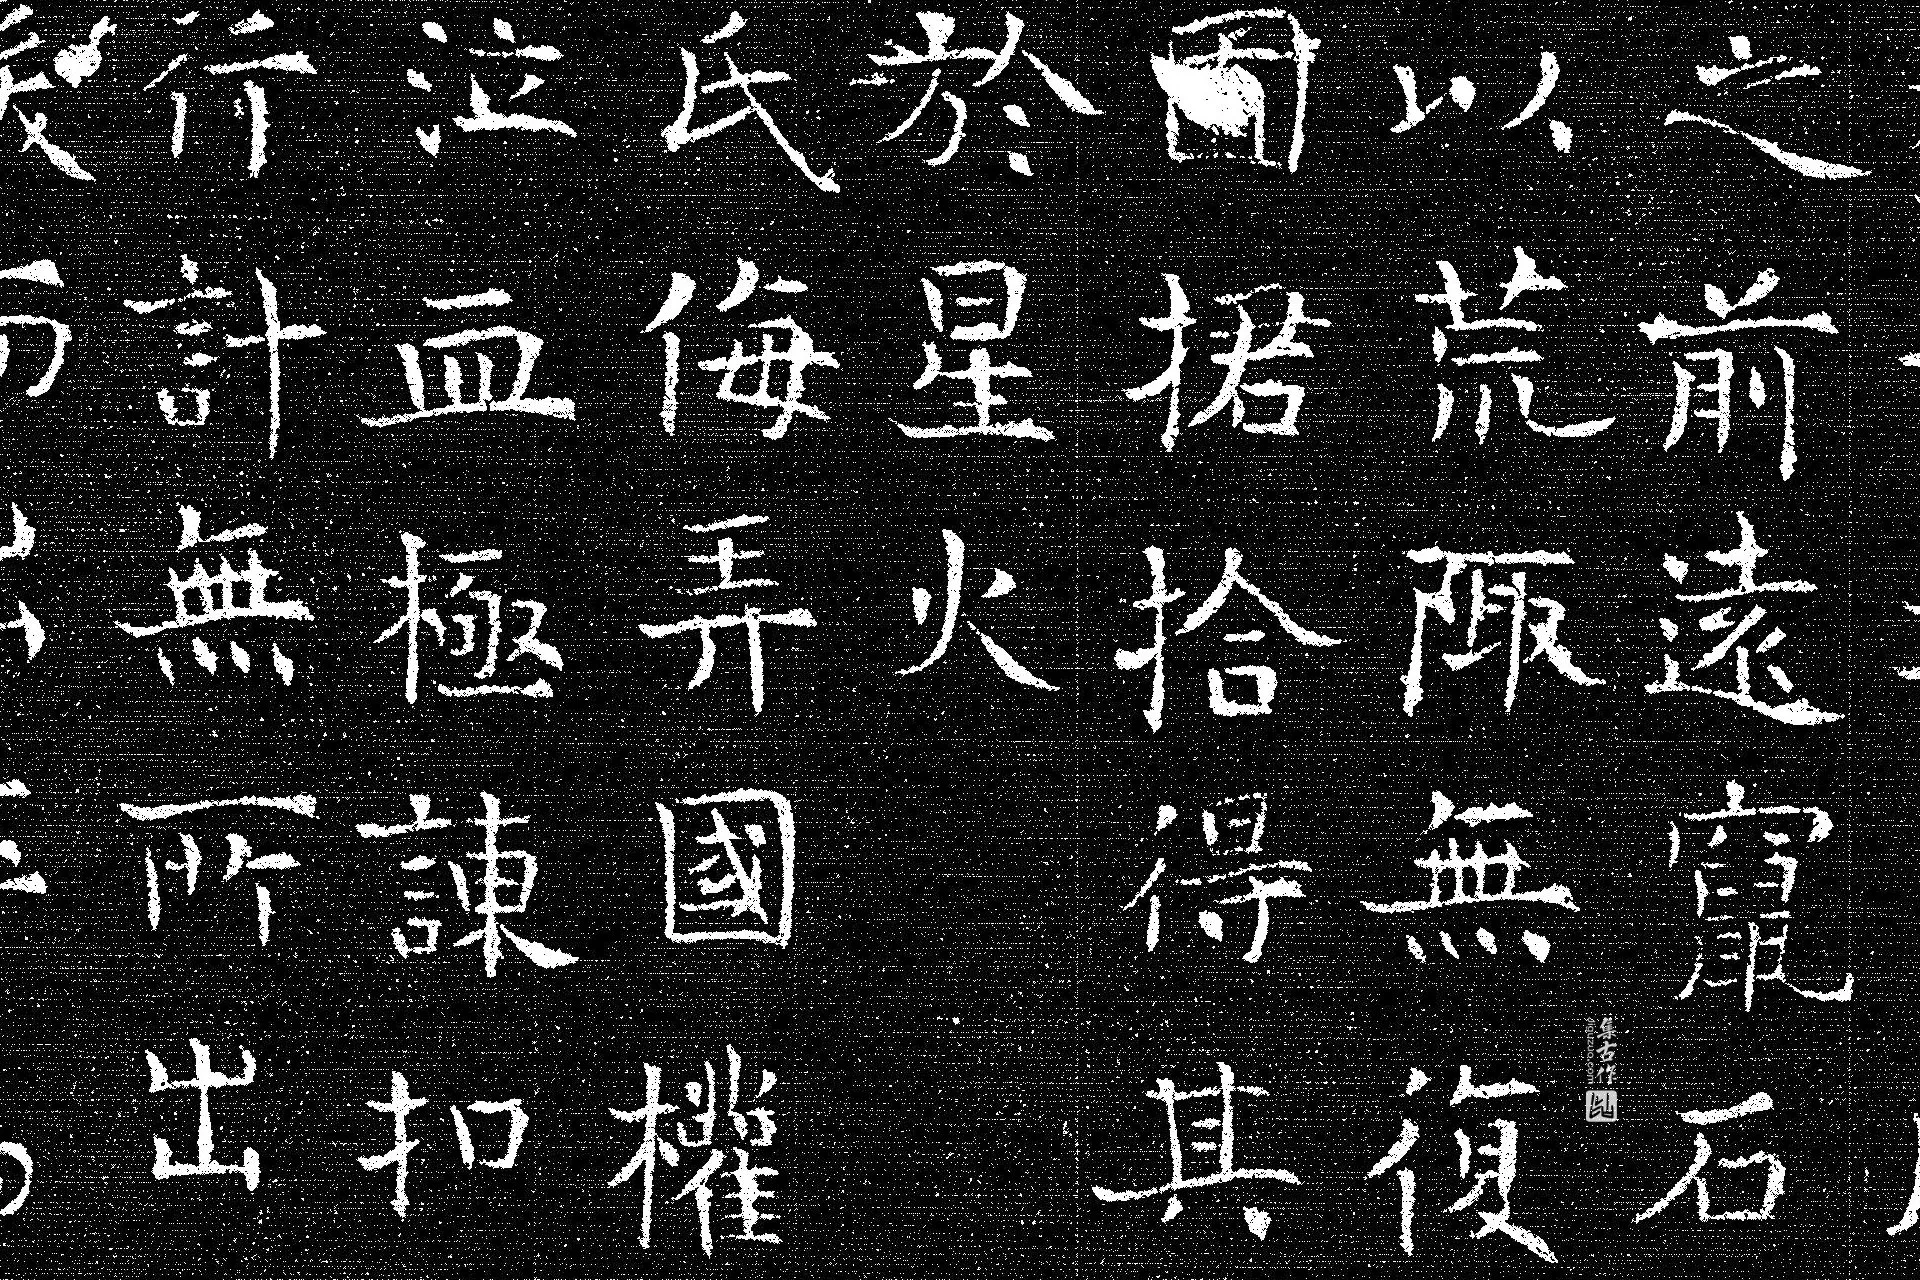 之前遠竄石
以荒陬無復
圖捃拾得其
於星火
氏侮弄國權
泣血極諫扣
行計無所出
集古作